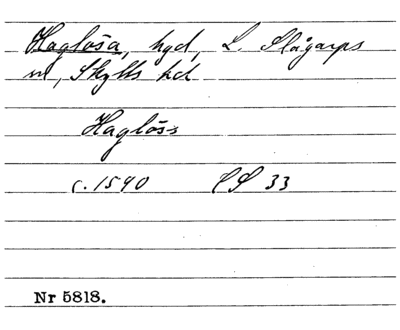 Haglösa, hgd, L. Slågarps
sn, Skytts hd
Haglöss
c. 1590 LS 33
Nr 5818.